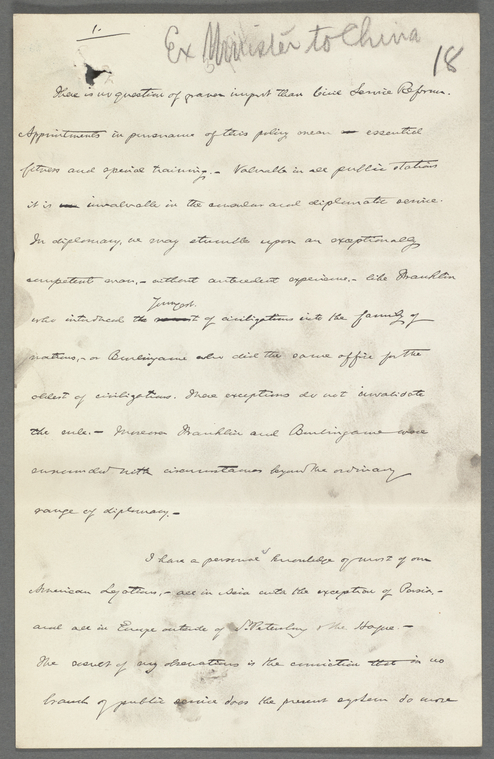 1.
Ex Minister to China
18
There is no question of graver import than Civil Service Reform.
Appointments in pursuance of this policy mean essential
fitness and special training. - Valuable in all public stations
it is invaluable in the consular and diplomatic service.
In diplomacy, we may stumble upon an exceptionally
competent man, - without antecedent experience, - like Franklin
youngest
who introduced the of civilizations into the family of
nations, - or Burlingame who did the same office for the
oldest of civilizations. These exceptions do not invalidate
the rule. - Moreover Franklin and Burlingame were
surrounded with circumstances beyond the ordinary
range of diplomacy. -
I have a personal knowledge of most of our
American Legations, - all in Asia with the exception of Persia, -
and all in Europe outside of St. Petersburg & the Hague. -
The result of my observations is the conviction that in no
branch of public service does the present system do more